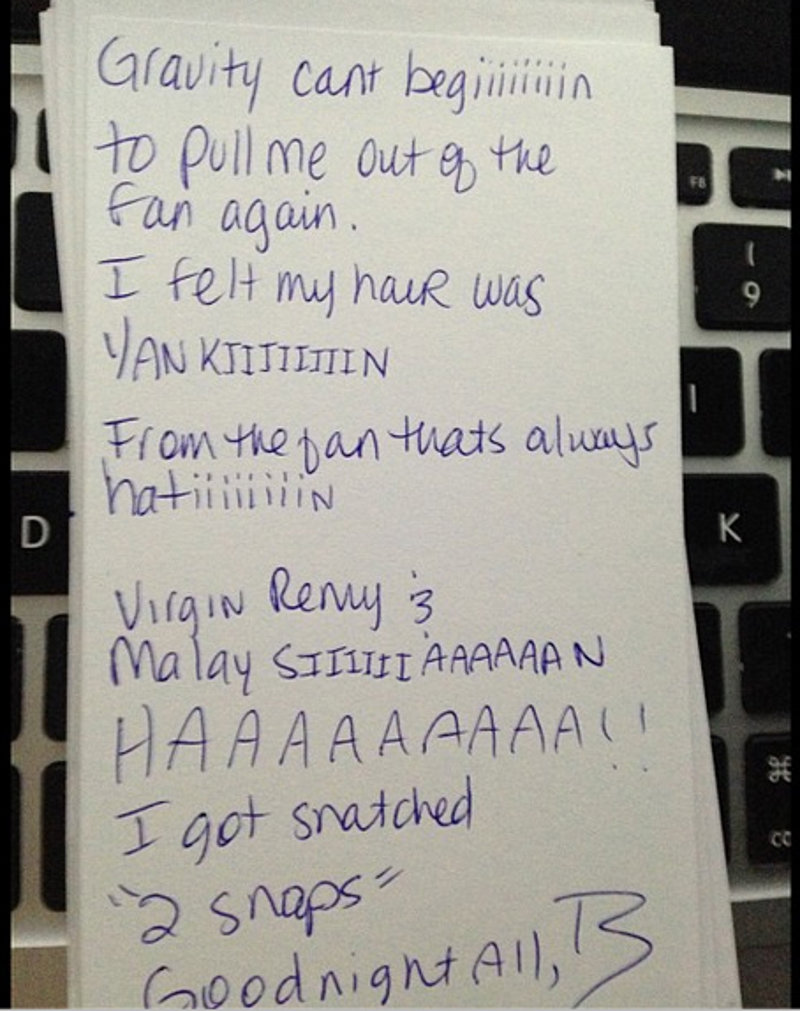 Gravity cant begiiiiiiiin
to pull me out of the
fan again.
I felt my haiR was
YANKIIIIIIIIN
From the fan thats always
hatiiiiiiiiiN
VirgiN Remy &
Malay SIIIIIIAAAAAAN
HAAAAAAAAA!!
I got snatched
"2 snaps"
Goodnight All, B
F8
(
9
I
D
K
⌘